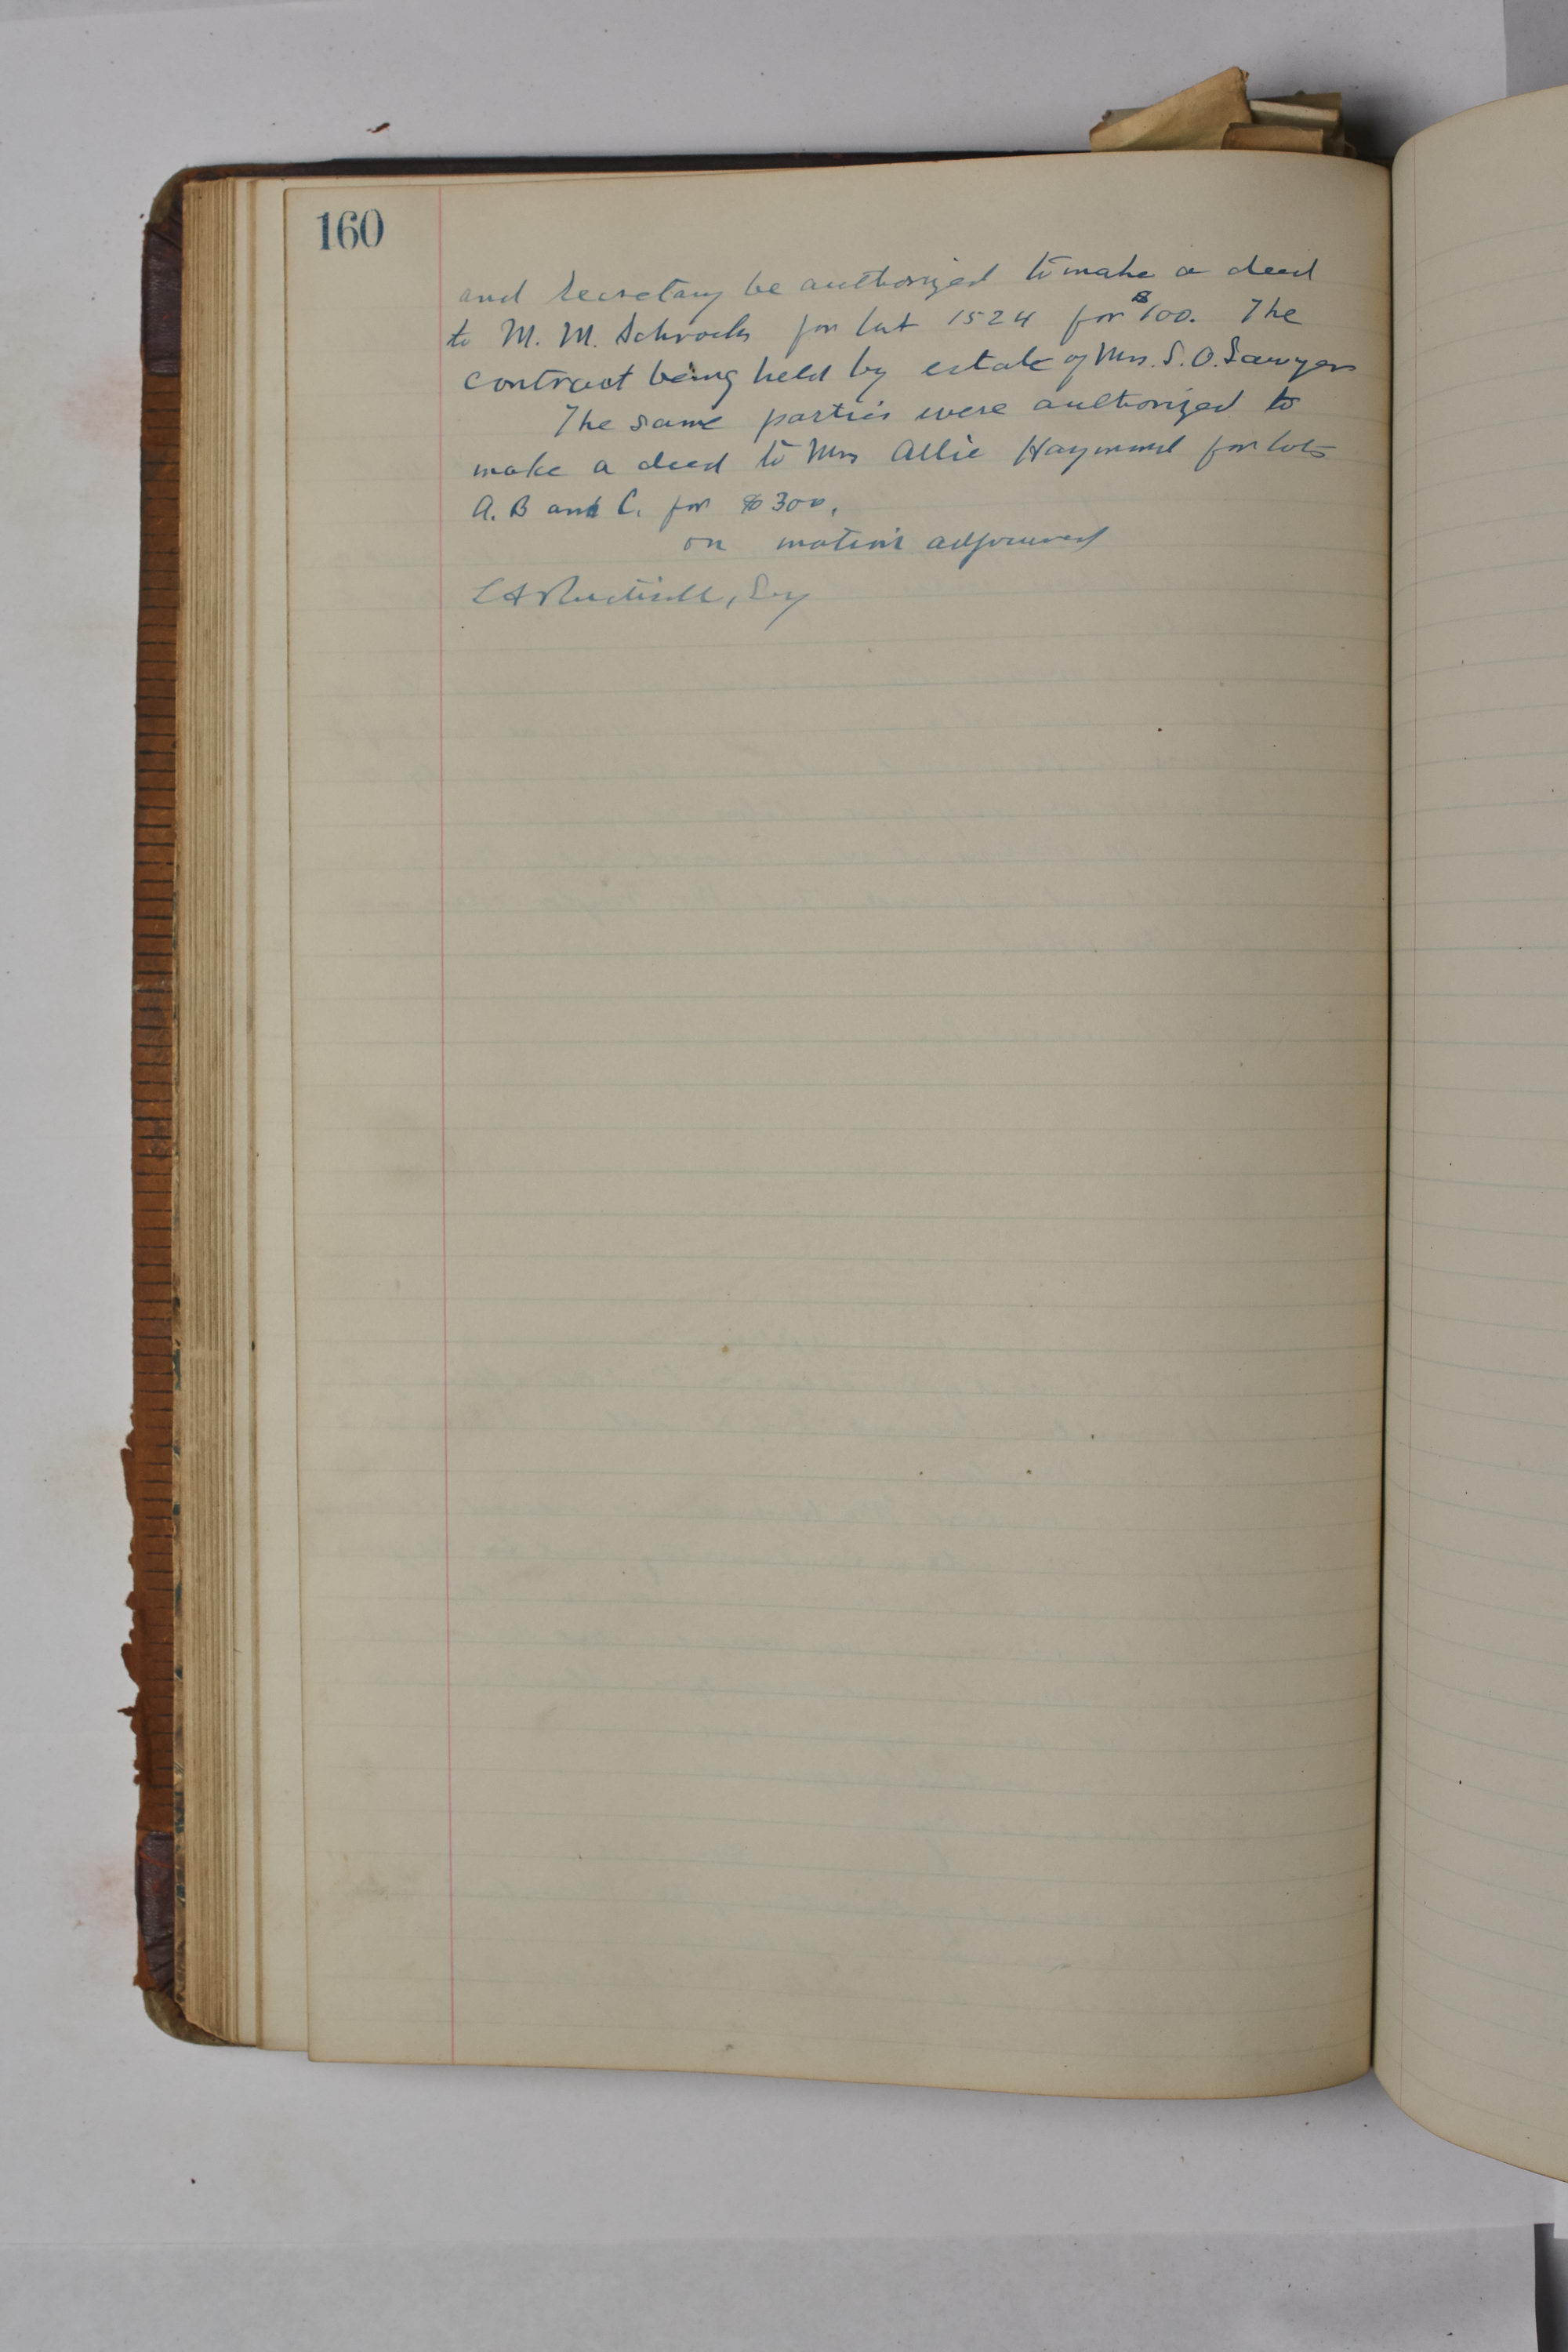 160
and Secretary be authorized to make a deed
to M. M. Schrock for lot 1524 for $100. The
contract being held by estate of Mrs. S. O. Sawyer
The same parties were authorized to
make a deed to Mrs Allie Haymond for lots
A. B and C. for $300.
on motion adjourned
Secy